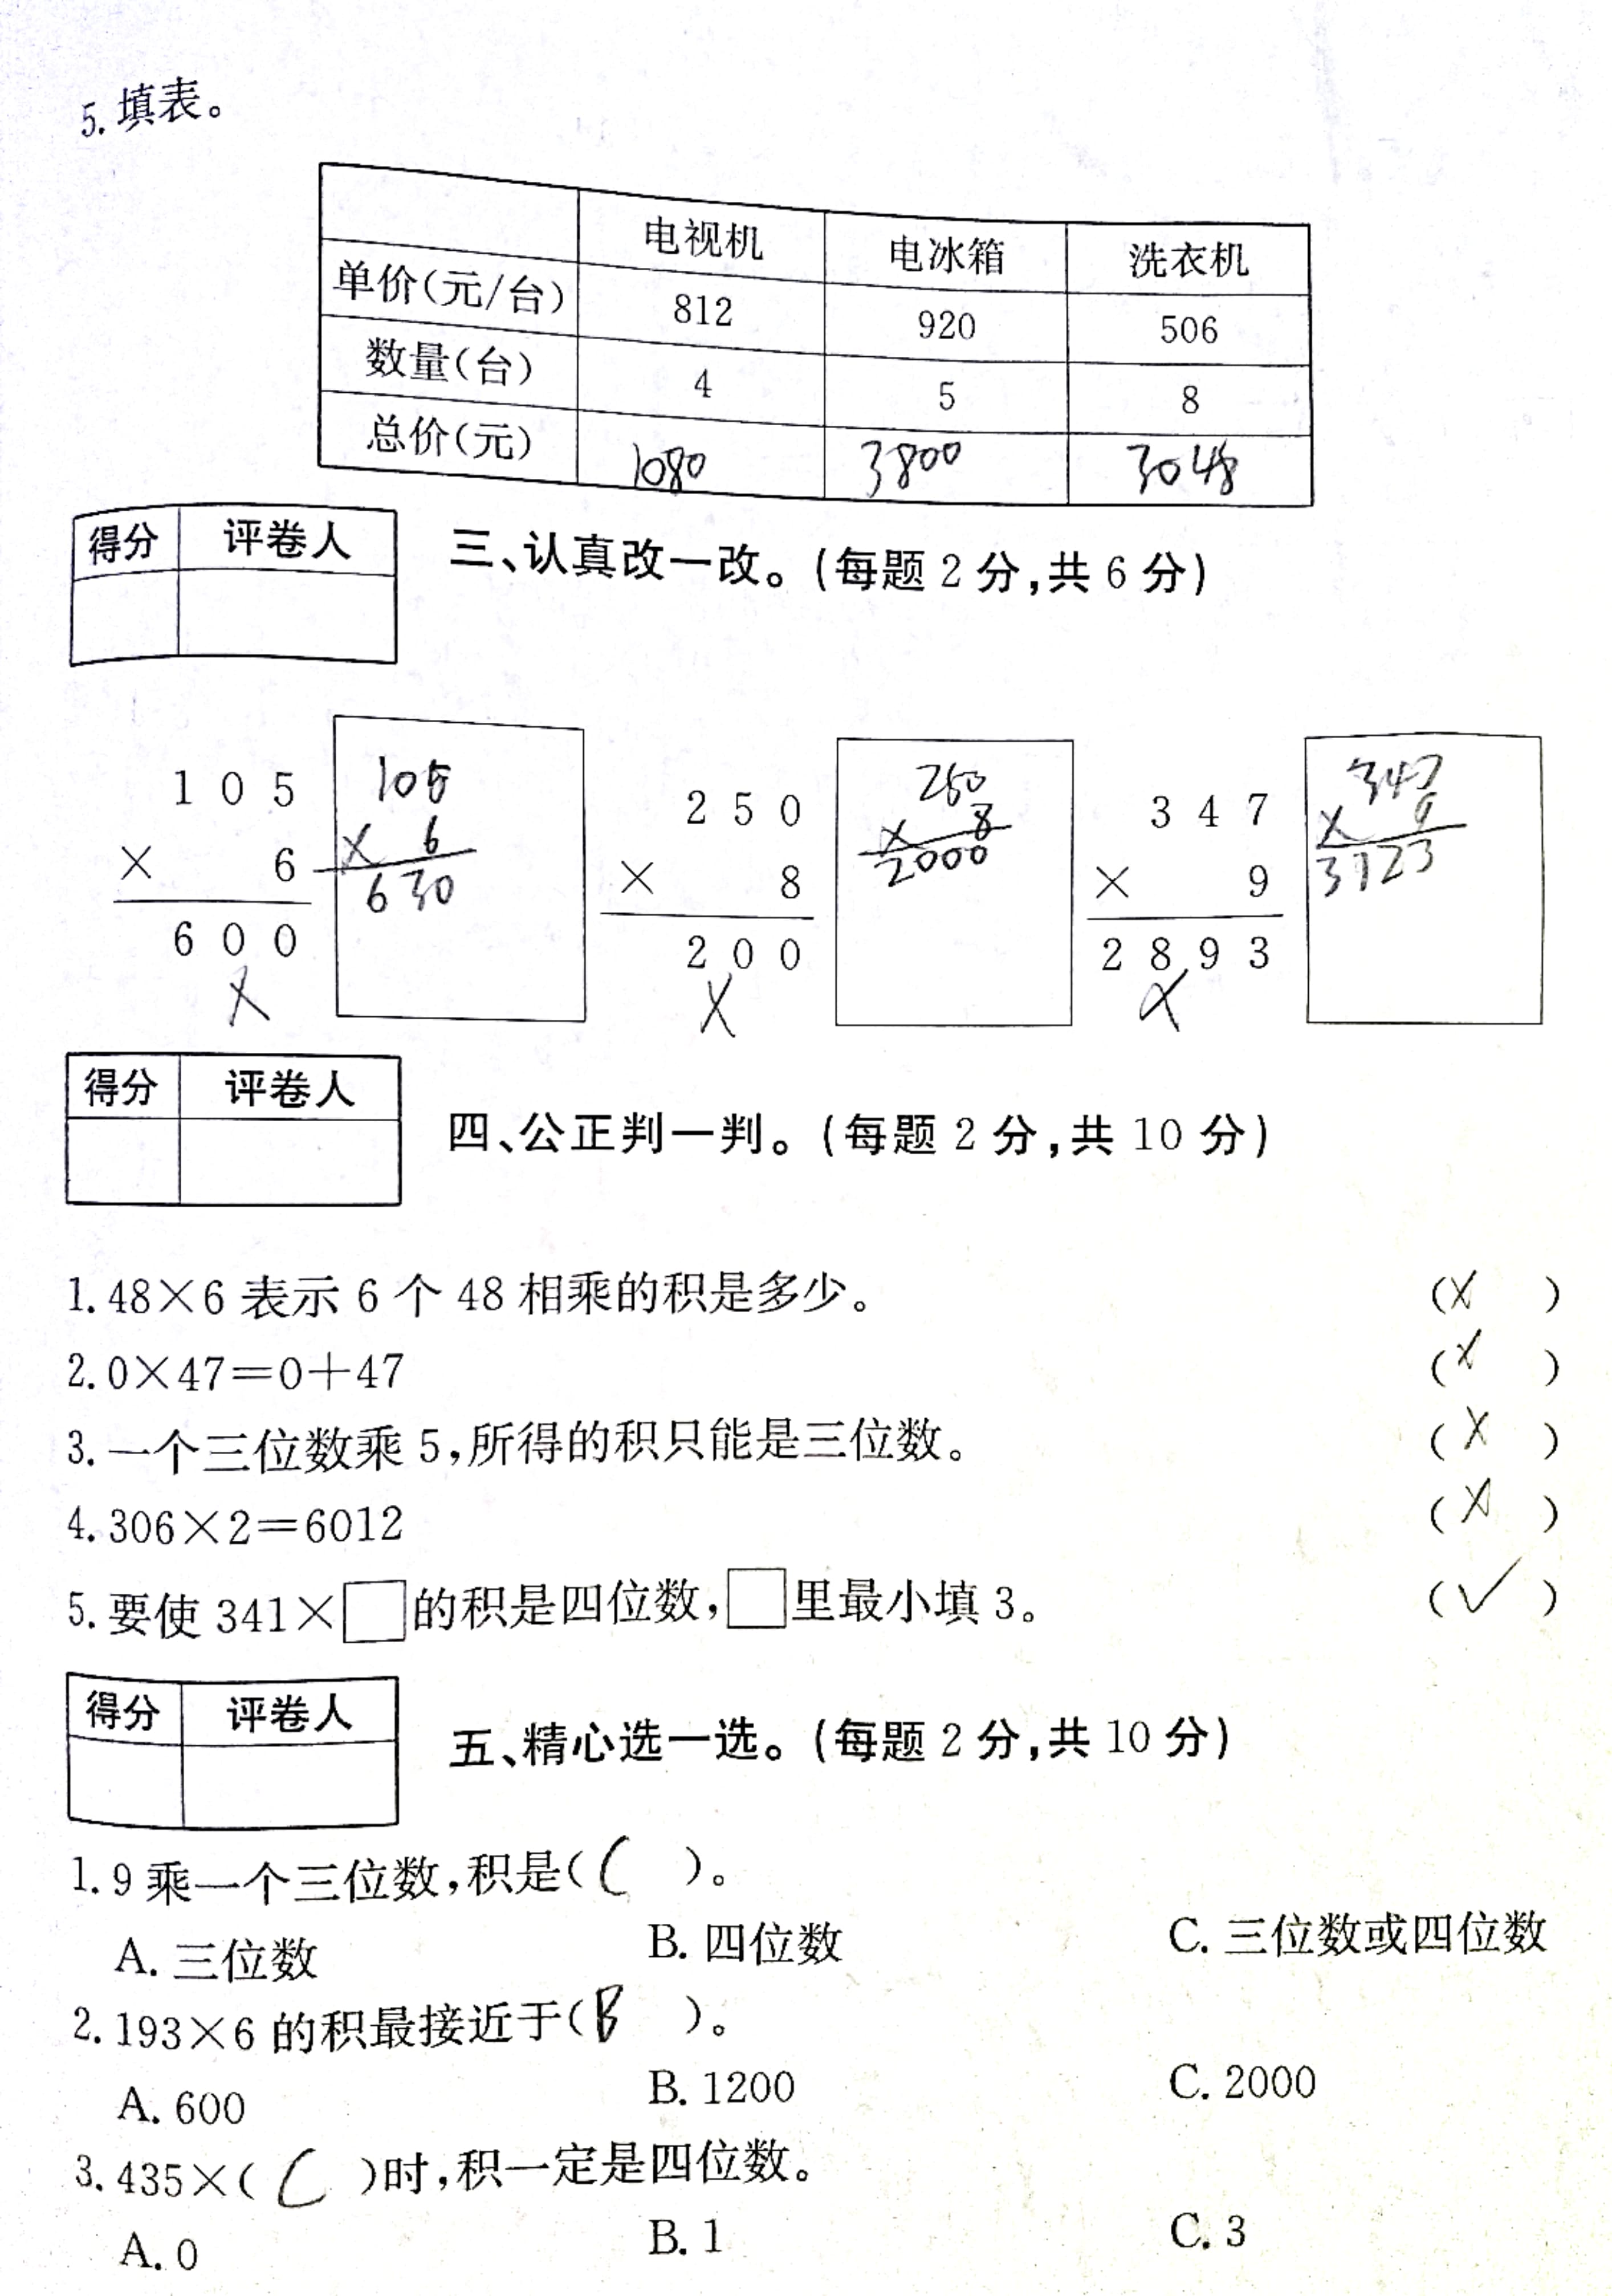 5.填表。
电视机 电冰箱 洗衣机
单价(元/台) 812 920 506
数量(台) 4 5 8
总价(元) 1080 3800 3048
得分 评卷人
三、认真改一改。(每题2分,共6分)
105 105 250 250 347 347
× 6 × 6 × 8 × 8 × 9 × 9
600 630 200 2000 2893 3123
× × ×
得分 评卷人
四、公正判一判。(每题2分,共10分)
1.48×6表示6个48相乘的积是多少。 (×)
2.0×47=0+47 (×)
3.一个三位数乘5,所得的积只能是三位数。 (×)
4.306×2=6012 (×)
5.要使341×□的积是四位数,□里最小填3。 (√)
得分 评卷人
五、精心选一选。(每题2分,共10分)
1.9乘一个三位数,积是(C)。
A.三位数 B.四位数 C.三位数或四位数
2.193×6的积最接近于(B)。
A.600 B.1200 C.2000
3.435×(C)时,积一定是四位数。
A.0 B.1 C.3